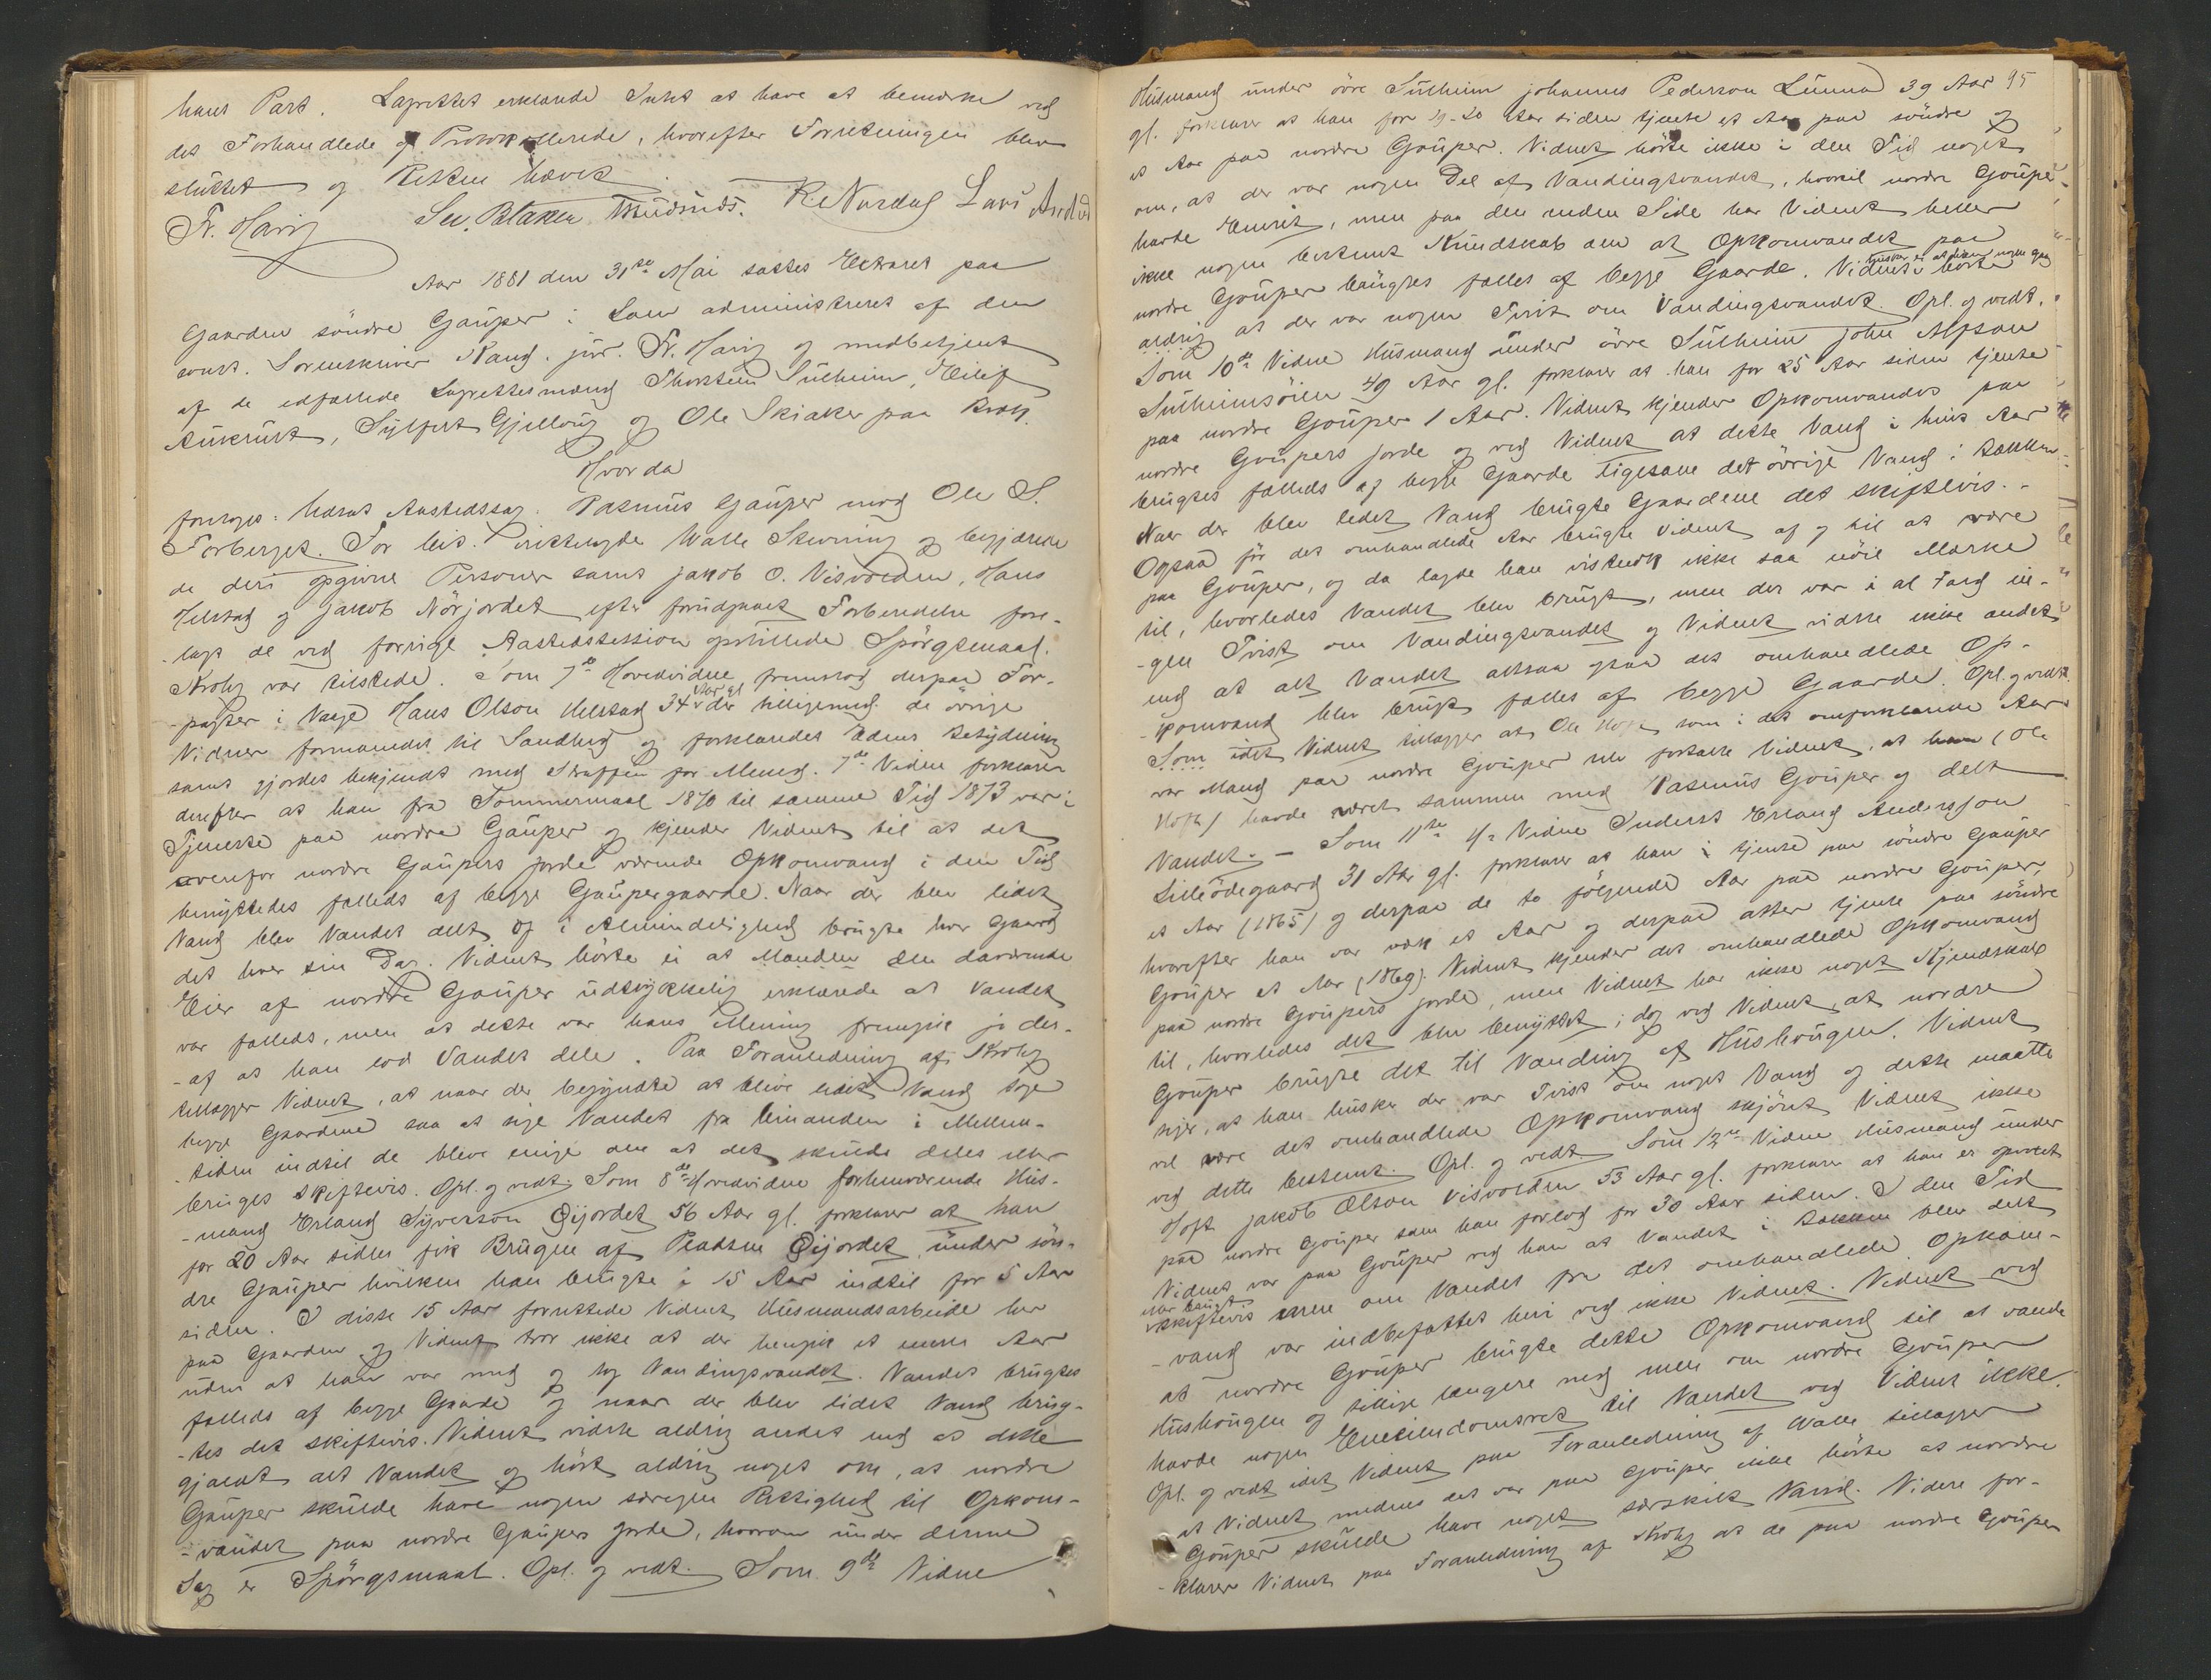 hans Part. Lagrettet erklærede Intet at have at bemærke ved
det Forhandlede og Protokollerede, hvorefter Forretningen blev
sluttet og Retten hævet
Fr. Harig Sev. Blaker K Nordal Lars
Aar 1881 den 31te Mai sattes Extraret paa
Gaarden söndre Gaüper i Lom administreret af den
const. Sorenskriver Kand. jür. Fr. Harig og medbetjent
af de edfæstede Lagrettesmænd Thorstein Sülheim, Eilif
Aükrüst, Sylfest Gjellöüg og Ole Skiaker paa Krok.
Hvor da
foretoges: Udsat Aastedssag. Rasmüs Gaüper mod Ole S.
Forberget. For Cit. irettelagde Walle Stevning og begjærede
de deri opgivne Personer samt Jakob O. Visvolden, Hans
Ulstad og Jakob Nörjordet efter forüdgaaet Forberedelse fore-
-lagt de ved forrige Aastedssession opstillede Spörgsmaal.
Krohg var tilstede. Som 7de Hovedvidne fremstod derpaa For-
-pagter i Vaage Hans Olson Ulstad 34 Aar gl. der tilligemed de övrige
Vidner formanedes til Sandhed og forklaredes Edens Betydning
samt gjordes bekjendt med Straffen for Mened. 7de Vidne forklarer
derefter at han fra Sommermaal 1870 til samme Tid 1873 var i
Tjeneste paa nordre Gaüper og kjender Vidnet til at det
ovenfor nordre Gaüpers Jorde værende Opkomvand i den Tid
benyttedes fælleds af begge Gaüpergaarde. Naar der blev lidet
Vand blev Vandet delt og i Almindelighed brügte hver Gaard
det hver sin Dag. Vidnet hörte ei at Manden den daværende
Eier af nordre Gaüper üdtrykkelig erklærede at Vandet
var fælleds, men at dette var hans Mening fremgik jo der-
-af at han lod Vandet dele. Paa Foranledning af Krohg
tillægger Vidnet, at naar der begyndte at blive lidet Vand toge
begge Gaardene saa at sige Vandet fra hinanden i Mellem-
-tiden indtil de bleve enige om at det skülde deles eller
brüges skiftevis. Opl. og vedt. Som 8de Hovedvidne forhenværende Hüs-
-mand Erland Syverson Öijordet 56 Aar gl. forklarer at han
for 20 Aar siden fik Brügen af Pladsen Öijordet ünder sön-
dre Gaüper hvilken han brügte i 15 Aar indtil for 5 Aar
siden. I disse 15 Aar forrettede Vidnet Hüsmandsarbeide her
paa Gaarden og Vidnet tror ikke at der hengik et eneste Aar
üden at han var med og tog Vandingsvandet. Vandet brügtes
fælleds af begge Gaarde og naar der blev lidet Vand brüg-
-tes det skiftevis. Vidnet vidste aldrig andet end at dette
gjaldt alt Vandet og hört aldrig noget om, at nordre
Gaüper skülde have nogen særegen Rettighed til Opkom-
-vandet paa nordre Gaüpers Jorde, hvorom ünder denne
Sag er Spörgsmaal. Opl. og vedt. Som 9de Vidne
Hüsmand ünder övre Sülheim Johannes Pederson Lünna 39 Aar 95
gl. forklarer at han for 19-20 Aar siden tjente et Aar paa söndre og
et Aar paa nordre Gaüper. Vidnet hörte ikke i den Tid noget
om, at der var nogen Del af Vandingsvandet, hvortil nordre Gaüper
havde Eneret, men paa den anden Side har Vidnet heller
ikke nogen bestemt Kündskab om at Opkomvandet paa
nordre Gaüper brügtes fælles af begge Gaarde. Vidnet hörte
aldrig at der var nogen Tvist om Vandingsvandet. Opl. og vedt.
Som 10de Vidne Hüsmand ünder övre Sülheim John Alfson
Sülheimsöien 49 Aar gl. forklarer at han for 25 Aar siden tjente
paa nordre Gaüper 1 Aar. Vidnet kjender Opkomvandet paa
nordre Gaüpers Jorde og ved Vidnet at dette Vand i hint Aar
brügtes fælleds af begge Gaarde ligesom det övrige Vand i Bækken.
Naar der blev lidet Vand brügte Gaardene det skiftevis.
Ogsaa för det omhandlede Aar brügte Vidnet af og til at være
paa Gaüper, og da lagde han vistnok ikke saa nöie Mærke
til, hvorledes Vandet blev brügt, men der var i al Fald in-
-gen Tvist om Vandingsvandet og Vidnet vidste ikke andet
end at alt Vandet altsaa ogsaa det omhandlede Op-
-komvand blev brügt fælles af begge Gaarde. Opl. og vedt.
Som idet Vidnet tillægger at Ole Hoft som i det omforklarede Aar
var Mand paa nordre Gaüper selv fortalte Vidnet, at han (Ole
Hoft) havde været sammen med Rasmüs Gaüper og delt
Vandet. — Som 11te Vidne Inderst Erland Andersson
Lilleödegaard 31 Aar gl. forklarer at han i tjente paa söndre Gaüper
et Aar (1865) og derpaa de to fölgende Aar paa nordre Gaüper,
hvorefter han var væk et Aar og derpaa atter tjente paa söndre
Gaüper et Aar (1869). Vidnet kjender det omhandlede Opkomvand
paa nordre Gaüpers Jorde, men Vidnet har ikke noget Kjendskab
til, hvorledes det blev benyttet; dog ved Vidnet, at nordre
Gaüper brügte det til Vanding af Hüshaügen. Vidnet
siger, at han hüsker der var Tvist om noget Vand og dette maatte
vel være det omhandlede Opkomvand skjönt Vidnet ikke
ved dette bestemt. Opl. og vedt. Som 12te Vidne Hüsmand ünder
Hoft Jakob Olson Visvolden 53 Aar gl. forklarer at han er opvoxet
paa nordre Gaüper som han forlod for 30 Aar siden. I den Tid
Vidnet var paa Gaüper ved han at Vandet i Bækken blev delt
skiftevis men om Vandet fra det omhandlede Opkom-
-vand var indbefattet heri ved ikke Vidnet. Vidnet ved
at nordre Gaüper brügte dette Opkomvand til at vande
Hüshaügen og tillige længere ned men om nordre Gaüper
havde nogen Eneeiendomsret til Vandet ved Vidnet ikke.
Opl. og vedt. idet Vidnet paa Foranledning af Walle tillægger
at Vidnet medens det var paa Gaüper ikke hörte at nordre
Gaüper skülde have noget særskilt Vand. Videre for-
-klarer Vidnet paa Foranledning af Krohg at de paa nordre Gaüper